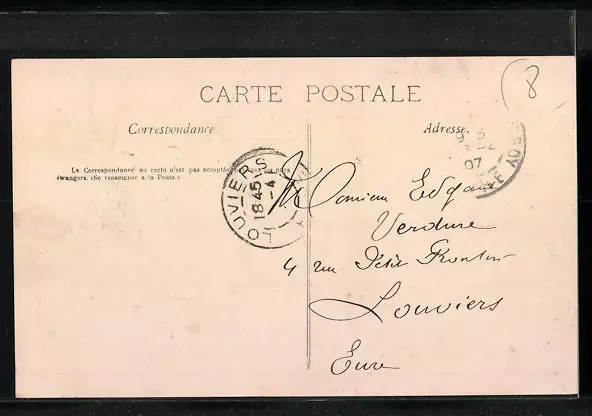 8
CARTE POSTALE
Correspondance
Adresse.
La Correspondance au recto n'est pas acceptée
étrangers. (Se renseigner à la Poste.)
LOUVIERS
18 45
-4
07
Monsieur Edgard
Verdure
4 rue Petit
Louviers
Eure